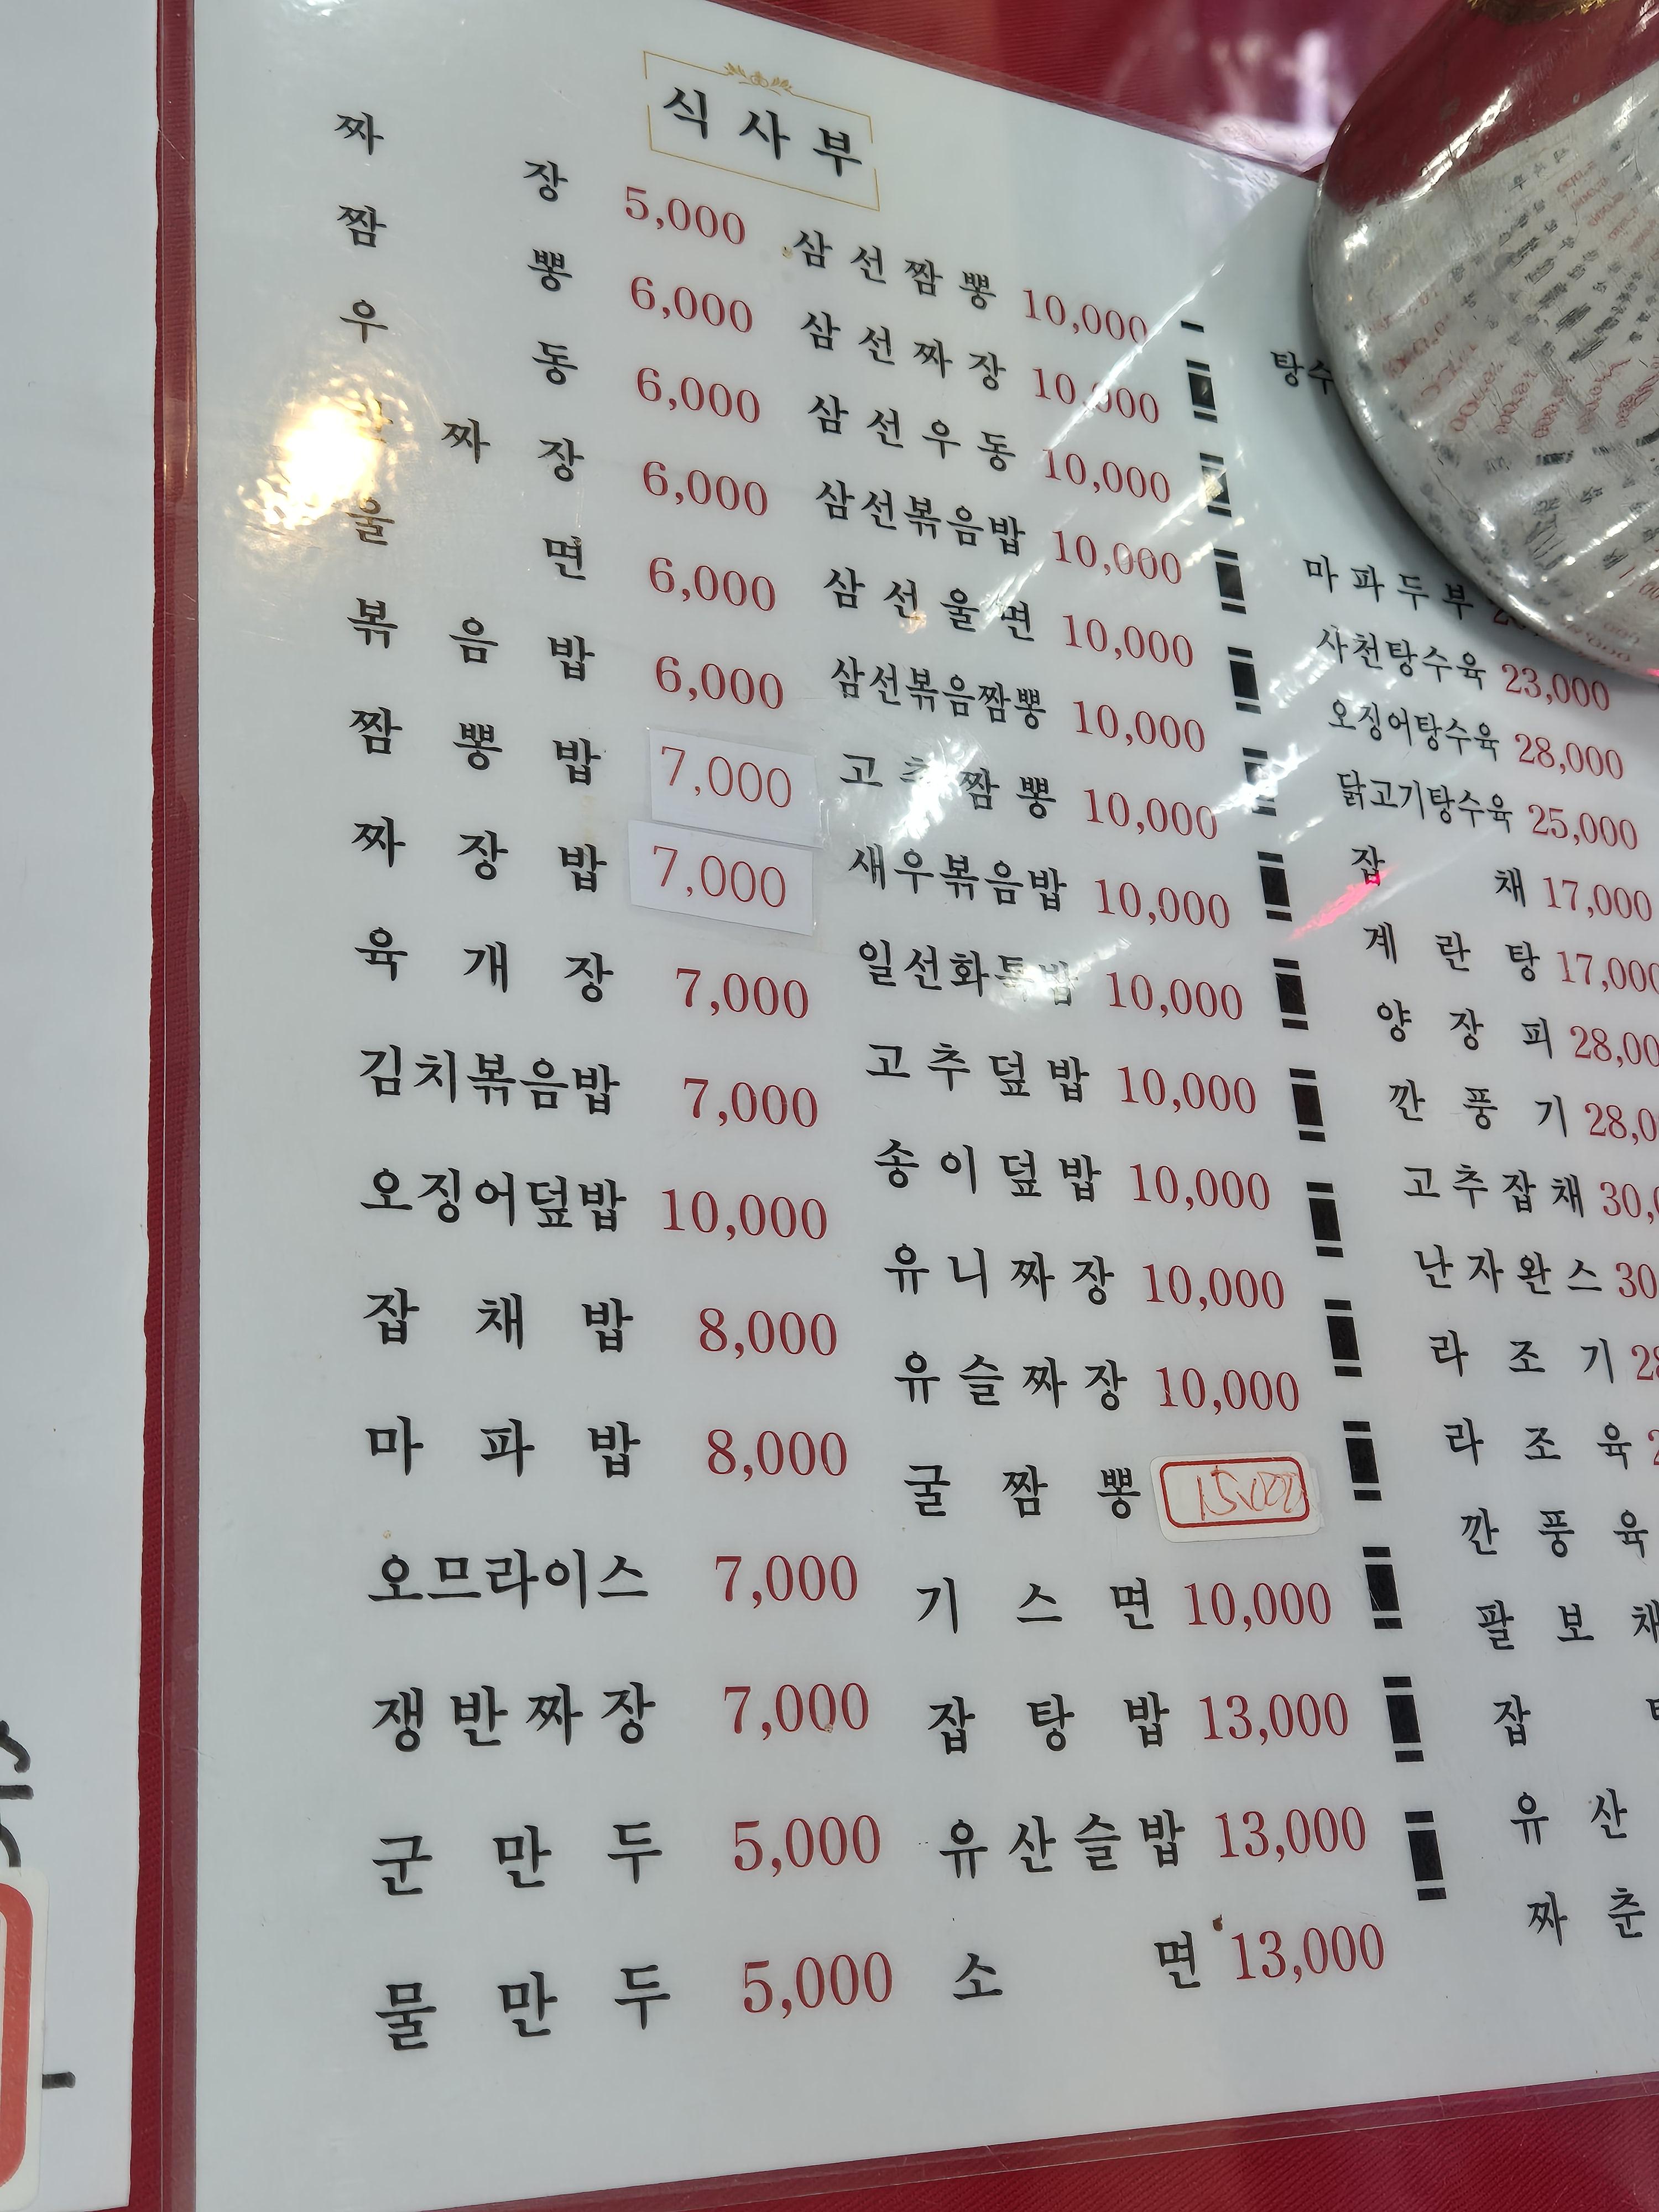 식사부
짜장 5,000
짬뽕 6,000
우동 6,000
짜장 6,000
울면 6,000
볶음밥 6,000
짬뽕밥 7,000
짜장밥 7,000
육개장 7,000
김치볶음밥 7,000
오징어덮밥 10,000
잡채밥 8,000
마파밥 8,000
오므라이스 7,000
쟁반짜장 7,000
군만두 5,000
물만두 5,000
삼선짬뽕 10,000
삼선짜장 10,000
삼선우동 10,000
삼선볶음밥 10,000
삼선울면 10,000
삼선볶음짬뽕 10,000
고추짬뽕 10,000
새우볶음밥 10,000
일선화특밥 10,000
고추덮밥 10,000
송이덮밥 10,000
유니짜장 10,000
유슬짜장 10,000
굴짬뽕 15,000
기스면 10,000
잡탕밥 13,000
유산슬밥 13,000
소면 13,000
탕수
마파두부
사천탕수육 23,000
오징어탕수육 28,000
닭고기탕수육 25,000
잡채 17,000
계란탕 17,000
양장피 28,00
깐풍기 28,0
고추잡채 30,
난자완스 30
라조기 28
라조육 2
깐풍육
팔보채
잡
유산
짜춘